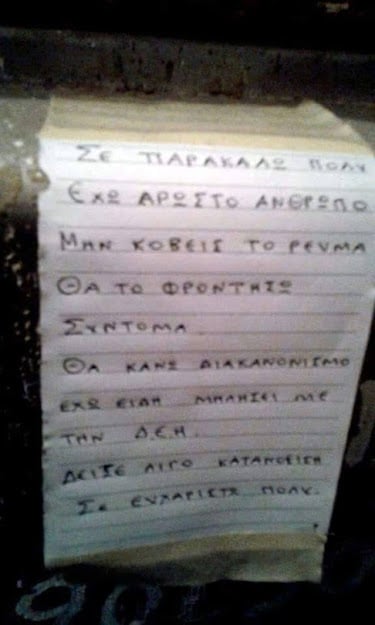 ΣΕ ΠΑΡΑΚΑΛΩ ΠΟΛΥ
ΕΧΩ ΑΡΩΣΤΟ ΑΝΘΡΩΠΟ
ΜΗΝ ΚΟΒΕΙΣ ΤΟ ΡΕΥΜΑ
ΘΑ ΤΟ ΦΡΟΝΤΗΣΩ
ΣΥΝΤΟΜΑ.
ΘΑ ΚΑΝΩ ΔΙΑΚΑΝΟΝΙΣΜΟ
ΕΧΩ ΕΙΔΗ ΜΠΛΗΣΕΙ ΜΕ
ΤΗΝ Δ.Ε.Η.
ΔΕΙΞΕ ΛΙΓΟ ΚΑΤΑΝΟΕΙΣΗ
ΣΕ ΕΥΧΑΡΙΣΤΩ ΠΟΛΥ.